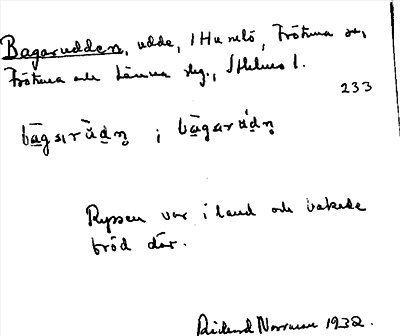 Bagarudden, udde, i Humlö, Frötuna sn,
Frötuna och Länna slg., Sthlms l.
233
bāgsıruďn̥ ; bāgaruďn̥
Ryssen var i land och bakade
bröd där.
Rickard Norrman 1932.